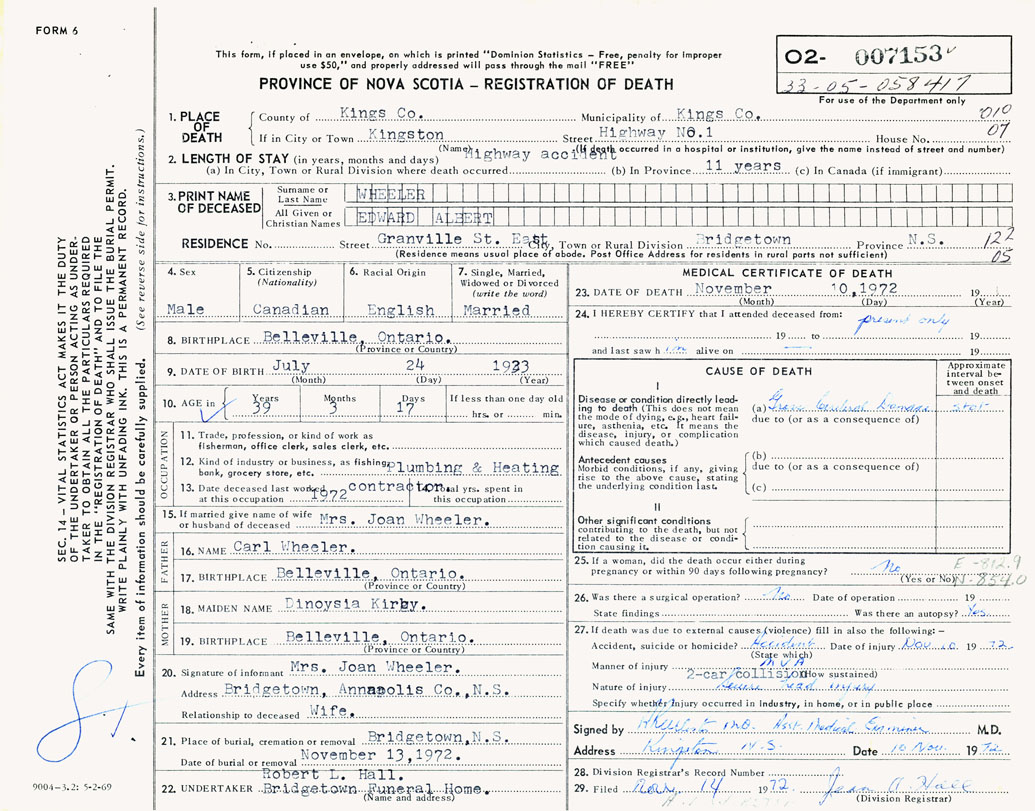 FORM 6
This form, if placed in an envelope, on which is printed "Dominion Statistics – Free, penalty for improper
use $50," and properly addressed will pass through the mail "FREE"
PROVINCE OF NOVA SCOTIA – REGISTRATION OF DEATH
02- 007153
33-05-058417
For use of the Department only
1. PLACE OF DEATH
County of Kings Co. Municipality of Kings Co. 010
If in City or Town Kingston Street Highway N0.1 House No. 07
(Name) (If death occurred in a hospital or institution, give the name instead of street and number)
Highway accident
2. LENGTH OF STAY (in years, months and days)
(a) In City, Town or Rural Division where death occurred (b) In Province 11 years (c) In Canada (if immigrant)
3. PRINT NAME OF DECEASED
Surname or Last Name WHEELER
All Given or Christian Names EDWARD ALBERT
RESIDENCE No. Street Granville St. East City, Town or Rural Division Bridgetown Province N.S. 122
(Residence means usual place of abode. Post Office Address for residents in rural parts not sufficient) 05
4. Sex
Male
5. Citizenship
(Nationality)
Canadian
6. Racial Origin
English
7. Single, Married,
Widowed or Divorced
(write the word)
Married
8. BIRTHPLACE Belleville, Ontario.
(Province or Country)
9. DATE OF BIRTH July 24 1933
(Month) (Day) (Year)
10. AGE in Years Months Days If less than one day old
39 3 17 hrs. or min.
OCCUPATION
11. Trade, profession, or kind of work as
fisherman, office clerk, sales clerk, etc.
12. Kind of industry or business, as fishing,
bank, grocery store, etc. Plumbing & Heating
contractor.
13. Date deceased last worked
at this occupation 1972
Total yrs. spent in
this occupation
15. If married give name of wife
or husband of deceased Mrs. Joan Wheeler.
FATHER
16. NAME Carl Wheeler.
17. BIRTHPLACE Belleville, Ontario.
(Province or Country)
MOTHER
18. MAIDEN NAME Dinoysia Kirby.
19. BIRTHPLACE Belleville, Ontario.
(Province or Country)
20. Signature of informant Mrs. Joan Wheeler.
Address Bridgetown, Annapolis Co.,N.S.
Relationship to deceased Wife.
21. Place of burial, cremation or removal Bridgetown,N.S.
Date of burial or removal November 13,1972.
Robert L. Hall.
22. UNDERTAKER Bridgetown Funeral Home.
(Name and address)
MEDICAL CERTIFICATE OF DEATH
23. DATE OF DEATH November 10,1972 19
(Month) (Day) (Year)
24. I HEREBY CERTIFY that I attended deceased from:
present only
19 to 19
and last saw him alive on 19
CAUSE OF DEATH
Approximate
interval be-
tween onset
and death
I
Disease or condition directly lead-
ing to death (This does not mean
the mode of dying, e.g., heart fail-
ure, asthenia, etc. It means the
disease, injury, or complication
which caused death.)
(a) Gross Cerebral Damage stat
due to (or as a consequence of)
Antecedent causes
Morbid conditions, if any, giving
rise to the above cause, stating
the underlying condition last.
(b)
due to (or as a consequence of)
(c)
II
Other significant conditions
contributing to the death, but not
related to the disease or condi-
tion causing it.
25. If a woman, did the death occur either during
pregnancy or within 90 days following pregnancy? No
(Yes or No)
E-812.9
N-854.0
26. Was there a surgical operation? No Date of operation 19
State findings Was there an autopsy? Yes
27. If death was due to external causes (violence) fill in also the following: –
Accident, suicide or homicide? Accident Date of injury Nov. 10. 1972
(State which)
Manner of injury MVA
2-car collision (How sustained)
Nature of injury Severe head injury
Specify whether injury occurred in industry, in home, or in public place
Signed by M.D. Asst. Medical Examiner M.D.
Address Kingston N.S. Date 10 Nov. 1972
28. Division Registrar's Record Number
29. Filed Nov. 14 1972 Jean A. Hall
(Division Registrar)
SEC. 14 – VITAL STATISTICS ACT MAKES IT THE DUTY
OF THE UNDERTAKER OR PERSON ACTING AS UNDER-
TAKER TO OBTAIN ALL THE PARTICULARS REQUIRED
IN THE "REGISTRATION OF DEATH" AND TO FILE THE
SAME WITH THE DIVISION REGISTRAR WHO SHALL ISSUE THE BURIAL PERMIT.
WRITE PLAINLY WITH UNFADING INK. THIS IS A PERMANENT RECORD.
Every item of information should be carefully supplied. (See reverse side for instructions.)
9004-3.2: 5-2-69